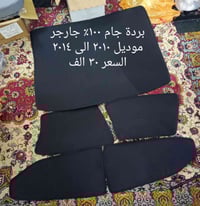 بردة جام ١٠٠٪ جارجر
موديل ٢٠١٠ الى ٢٠١٤
السعر ٣٠ الف